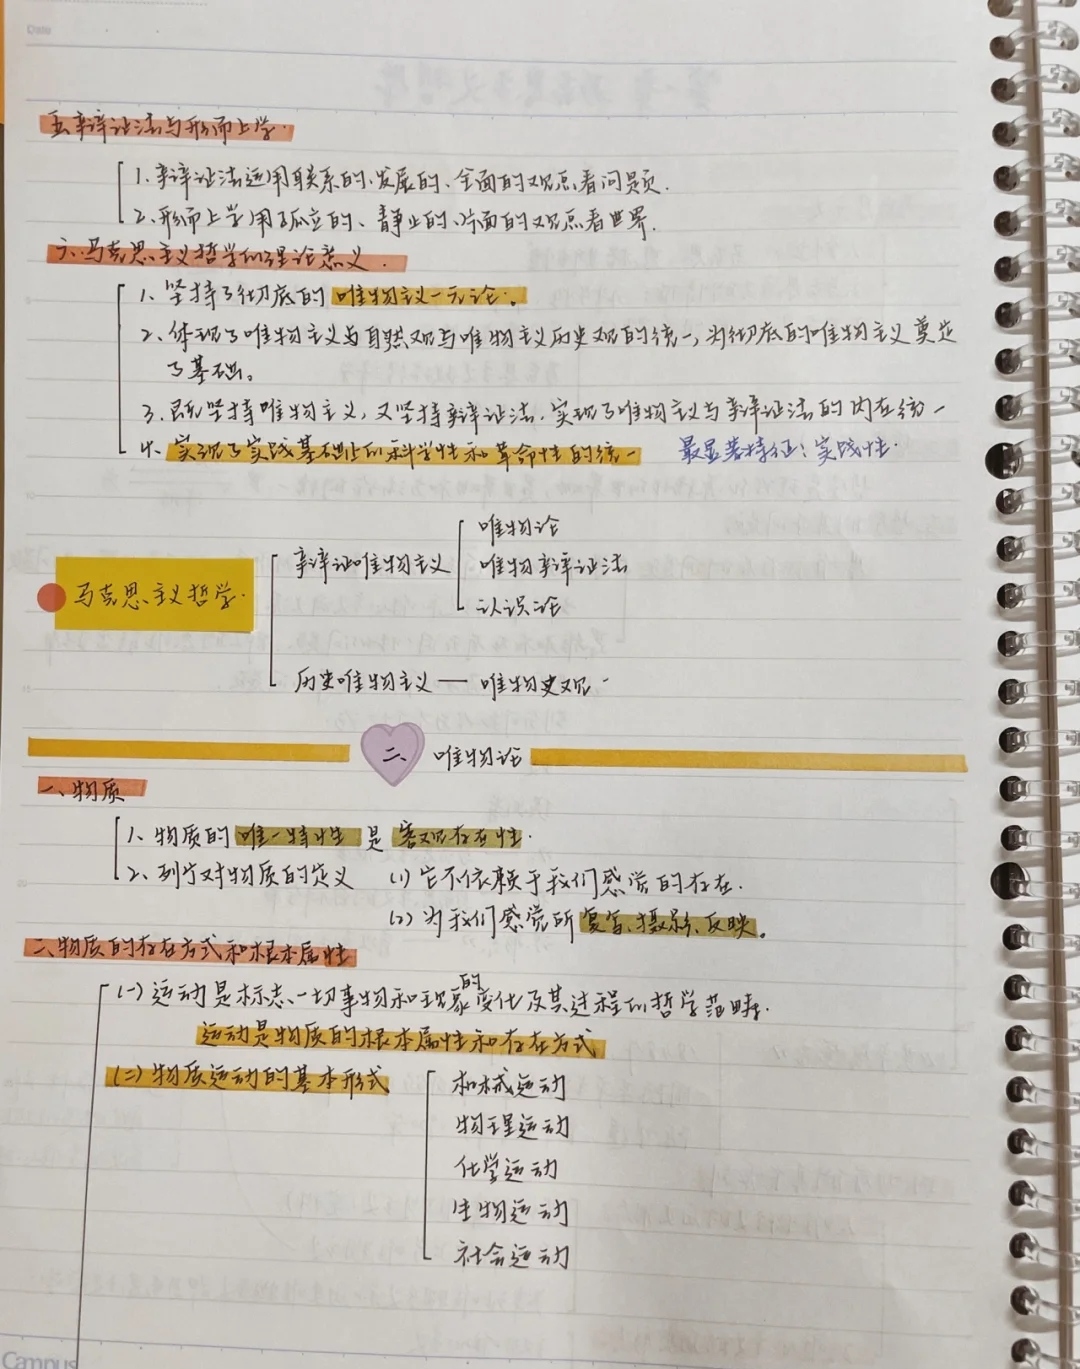 Date
五、辩证法与形而上学.
1.辩证法运用联系的、发展的、全面的观点看问题.
2.形而上学用了孤立的、静止的、片面的观点看世界.
六、马克思主义哲学的理论意义.
1、坚持了彻底的唯物主义一元论。
2、体现了唯物主义与自然观与唯物主义历史观的统一,为彻底的唯物主义奠定
了基础。
3.既坚持唯物主义,又坚持辩证法.实现了唯物主义与辩证法的内在统一
4.实现了实践基础上的科学性和革命性的统一 最显著特征:实践性.
唯物论
辩证唯物主义 唯物辩证法
认识论
马克思主义哲学.
历史唯物主义 — 唯物史观.
二、唯物论
一、物质
1、物质的唯一特性是客观存在性.
2、列宁对物质的定义 (1)它不依赖于我们感觉的存在.
(2)为我们感觉所复写、摄影、反映。
二、物质的存在方式和根本属性
(一)运动是标志一切事物和现象的变化及其过程的哲学范畴.
运动是物质的根本属性和存在方式
(二)物质运动的基本形式 机械运动
物理运动
化学运动
生物运动
社会运动
Campus